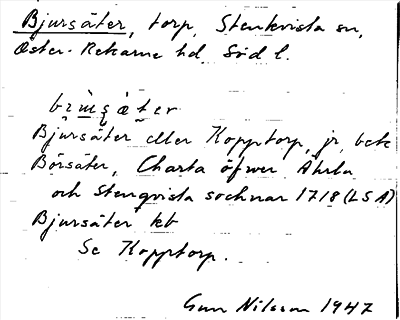 Bjursäter, torp, Stenkvista sn,
Öster-Rekarne hd, Södl.
Bjursäter eller Kopptorp, jr, betc
Börsäter, Charta öfwer Åhrla
och Stenqvista sochnar 1718 (LSA)
Bjursäter kb
Se Kopptorp.
Gun Nilsson 1947